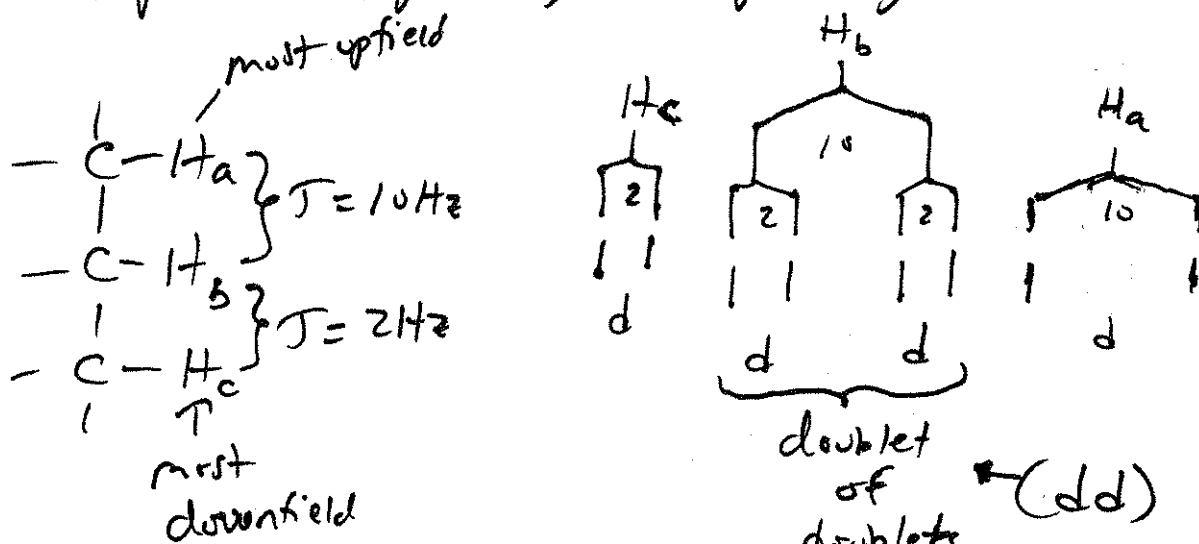 most upfield
— C — Ha } J = 10 Hz
— C — Hb
} J = 2 Hz
— C — Hc
↑
most
downfield
Hc
2
d
Hb
10
2 2
d d
doublet
of
doublets
← (dd)
Ha
10
d